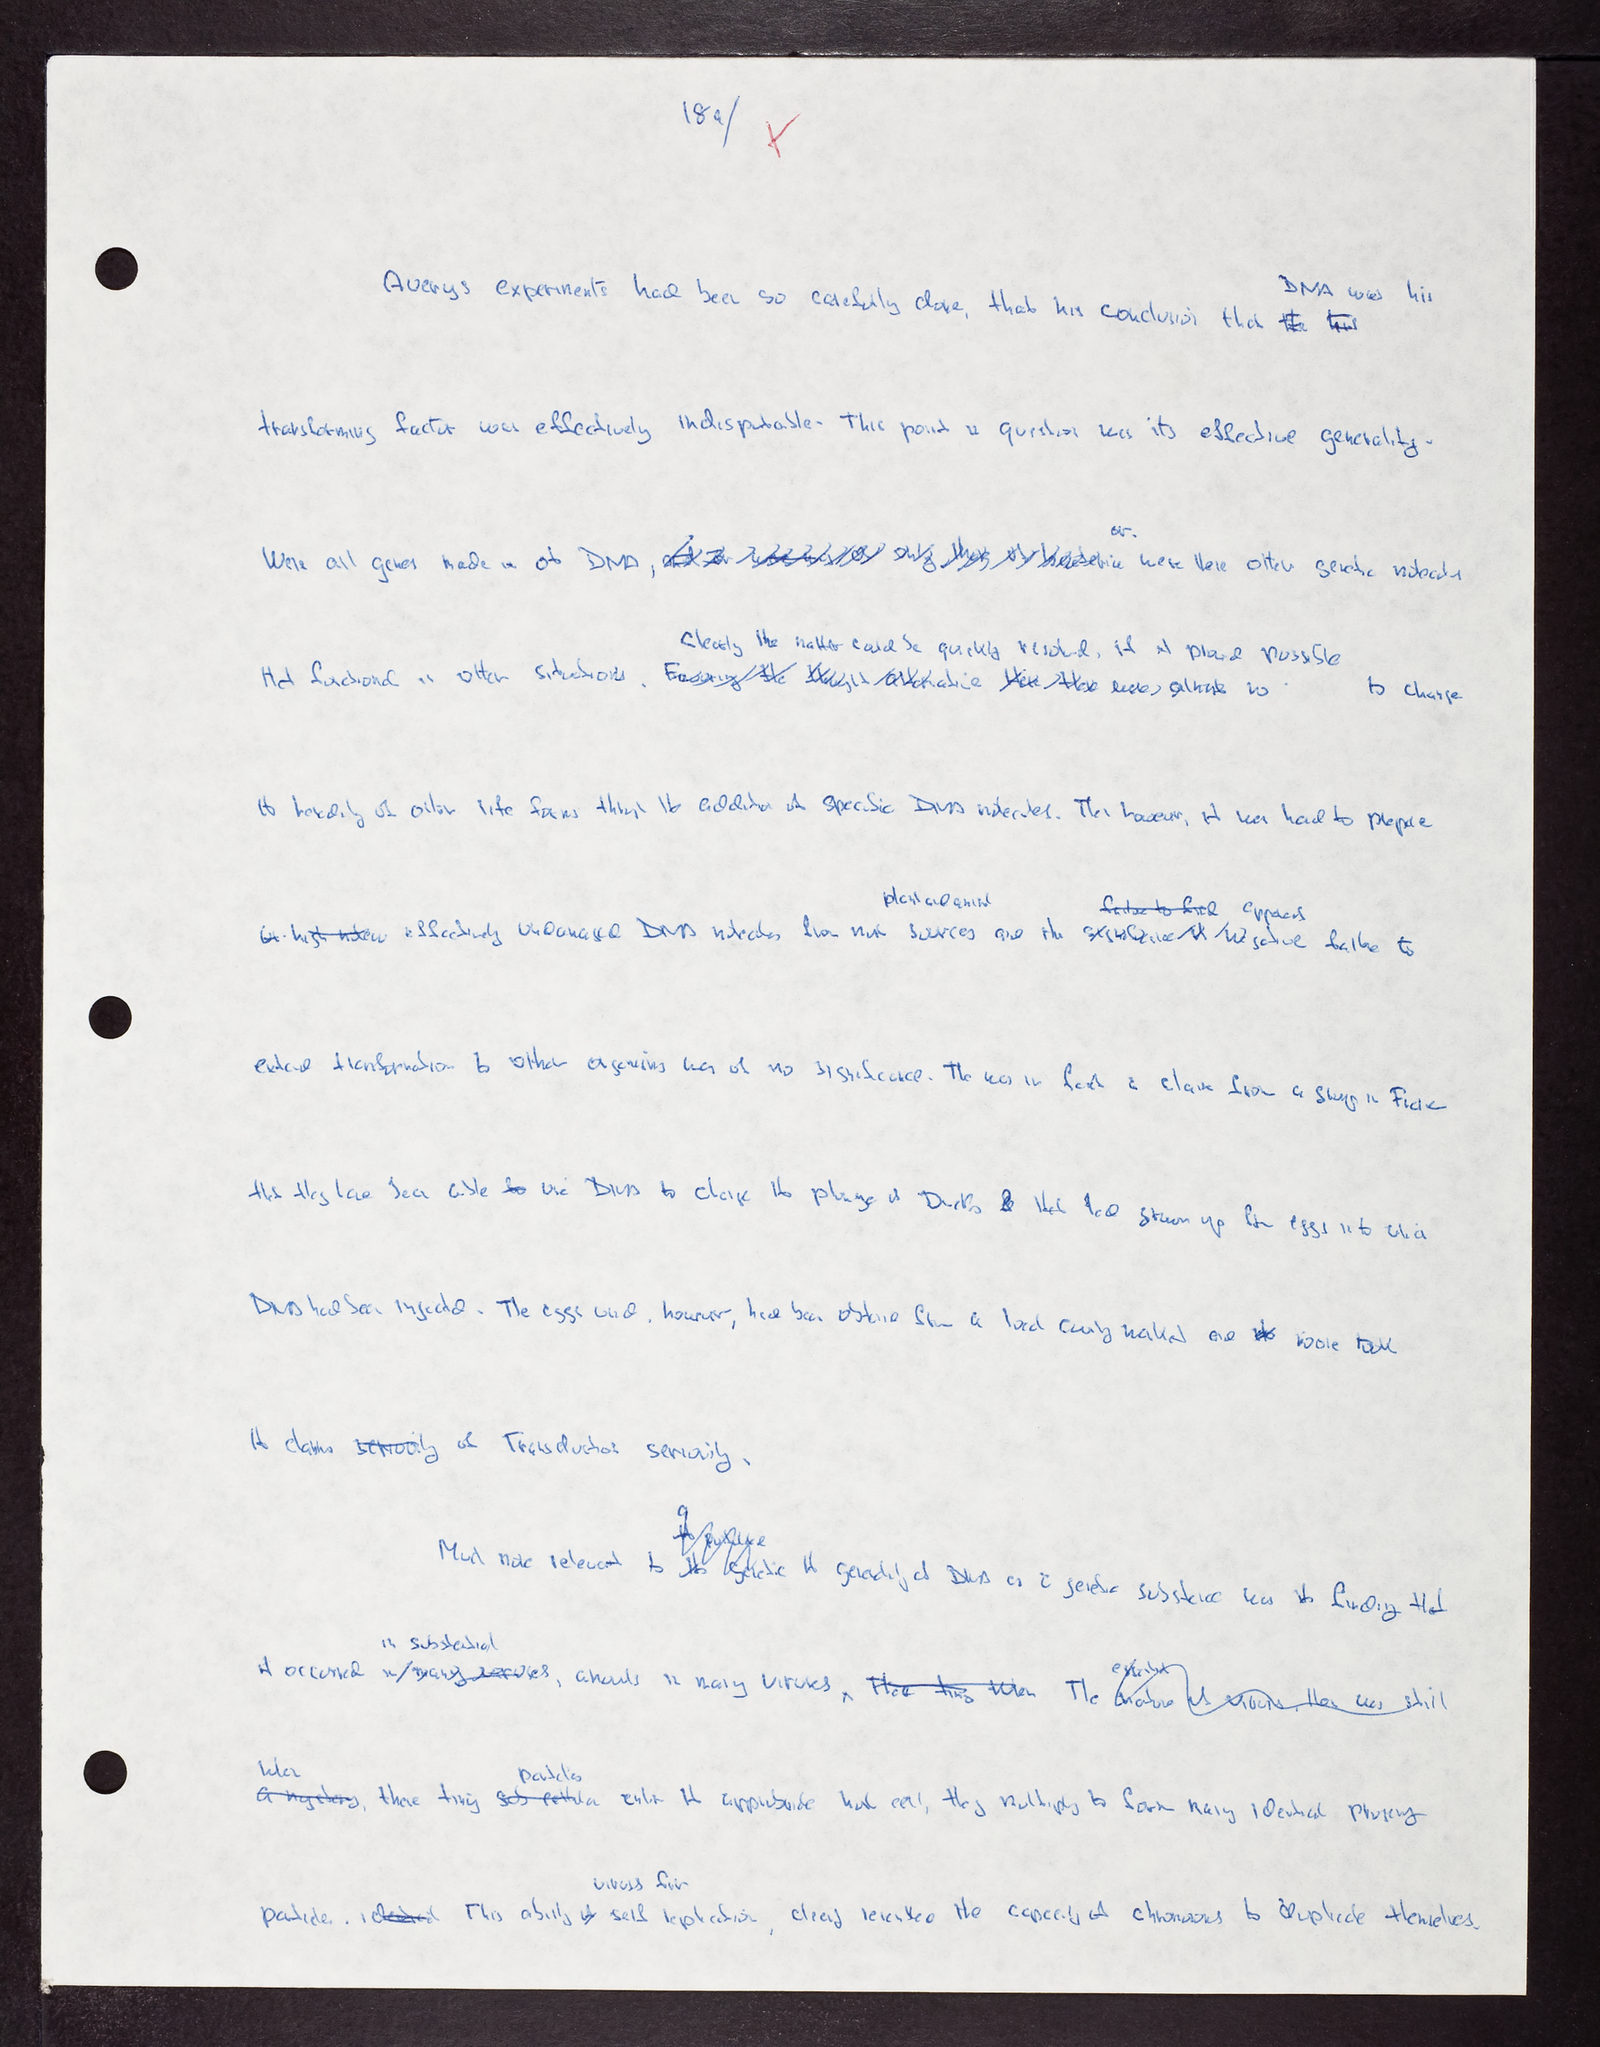 18a/
DNA was his
Averys experiments had been so carefully done, that his conclusion that the his
transforming factor was effectively indisputable. This point in question was its effective generality.
or
Were all genes made u of DNA, were there other genetic molecules
Clearly the matter could be quickly resolved, if it proved possible
that functional in other situations. to change
the heredity of other life forms through the addition of specific DNA molecules. Then however, it was hard to prepare
plant and animal
failure to find apparent
effectively undamaged DNA molecules from most sources and the significance of negative failure to
extend transformation to other organisms was of no significance. There was in fact a claim from a group in France
that they have been able to use DNA to change the plumage of Ducks that had grown up from eggs into which
DNA had been injected. The eggs used, however, had been obtained from a local county market and no one took
the claims seriously of Transduction seriously.
the
Much more relevant to the genetic the generality of DNA as a genetic substance was the finding that
in substantial
it occurred in many viruses, amounts in many viruses. The nature of viruses was still
when
particles
a mystery, these tiny enter the appropriate host cell, they multiply to form many identical progeny
viruses for
particles. identical This ability of self replication, clearly resembled the capacity of chromosomes to duplicate themselves.